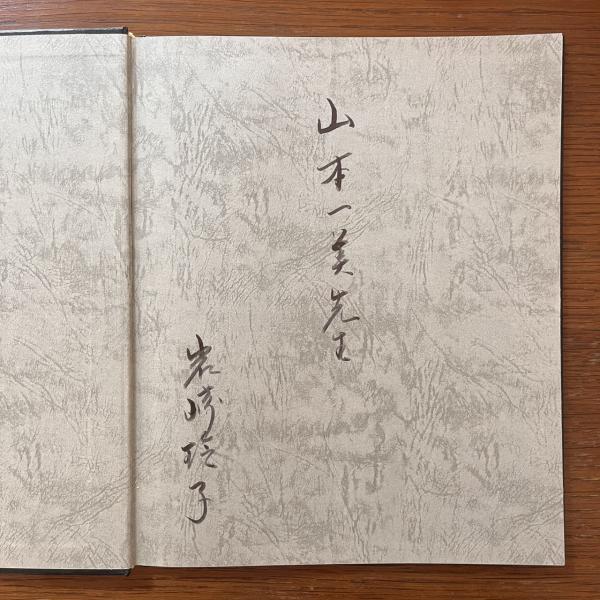 山本一美先生
岩崎玲子